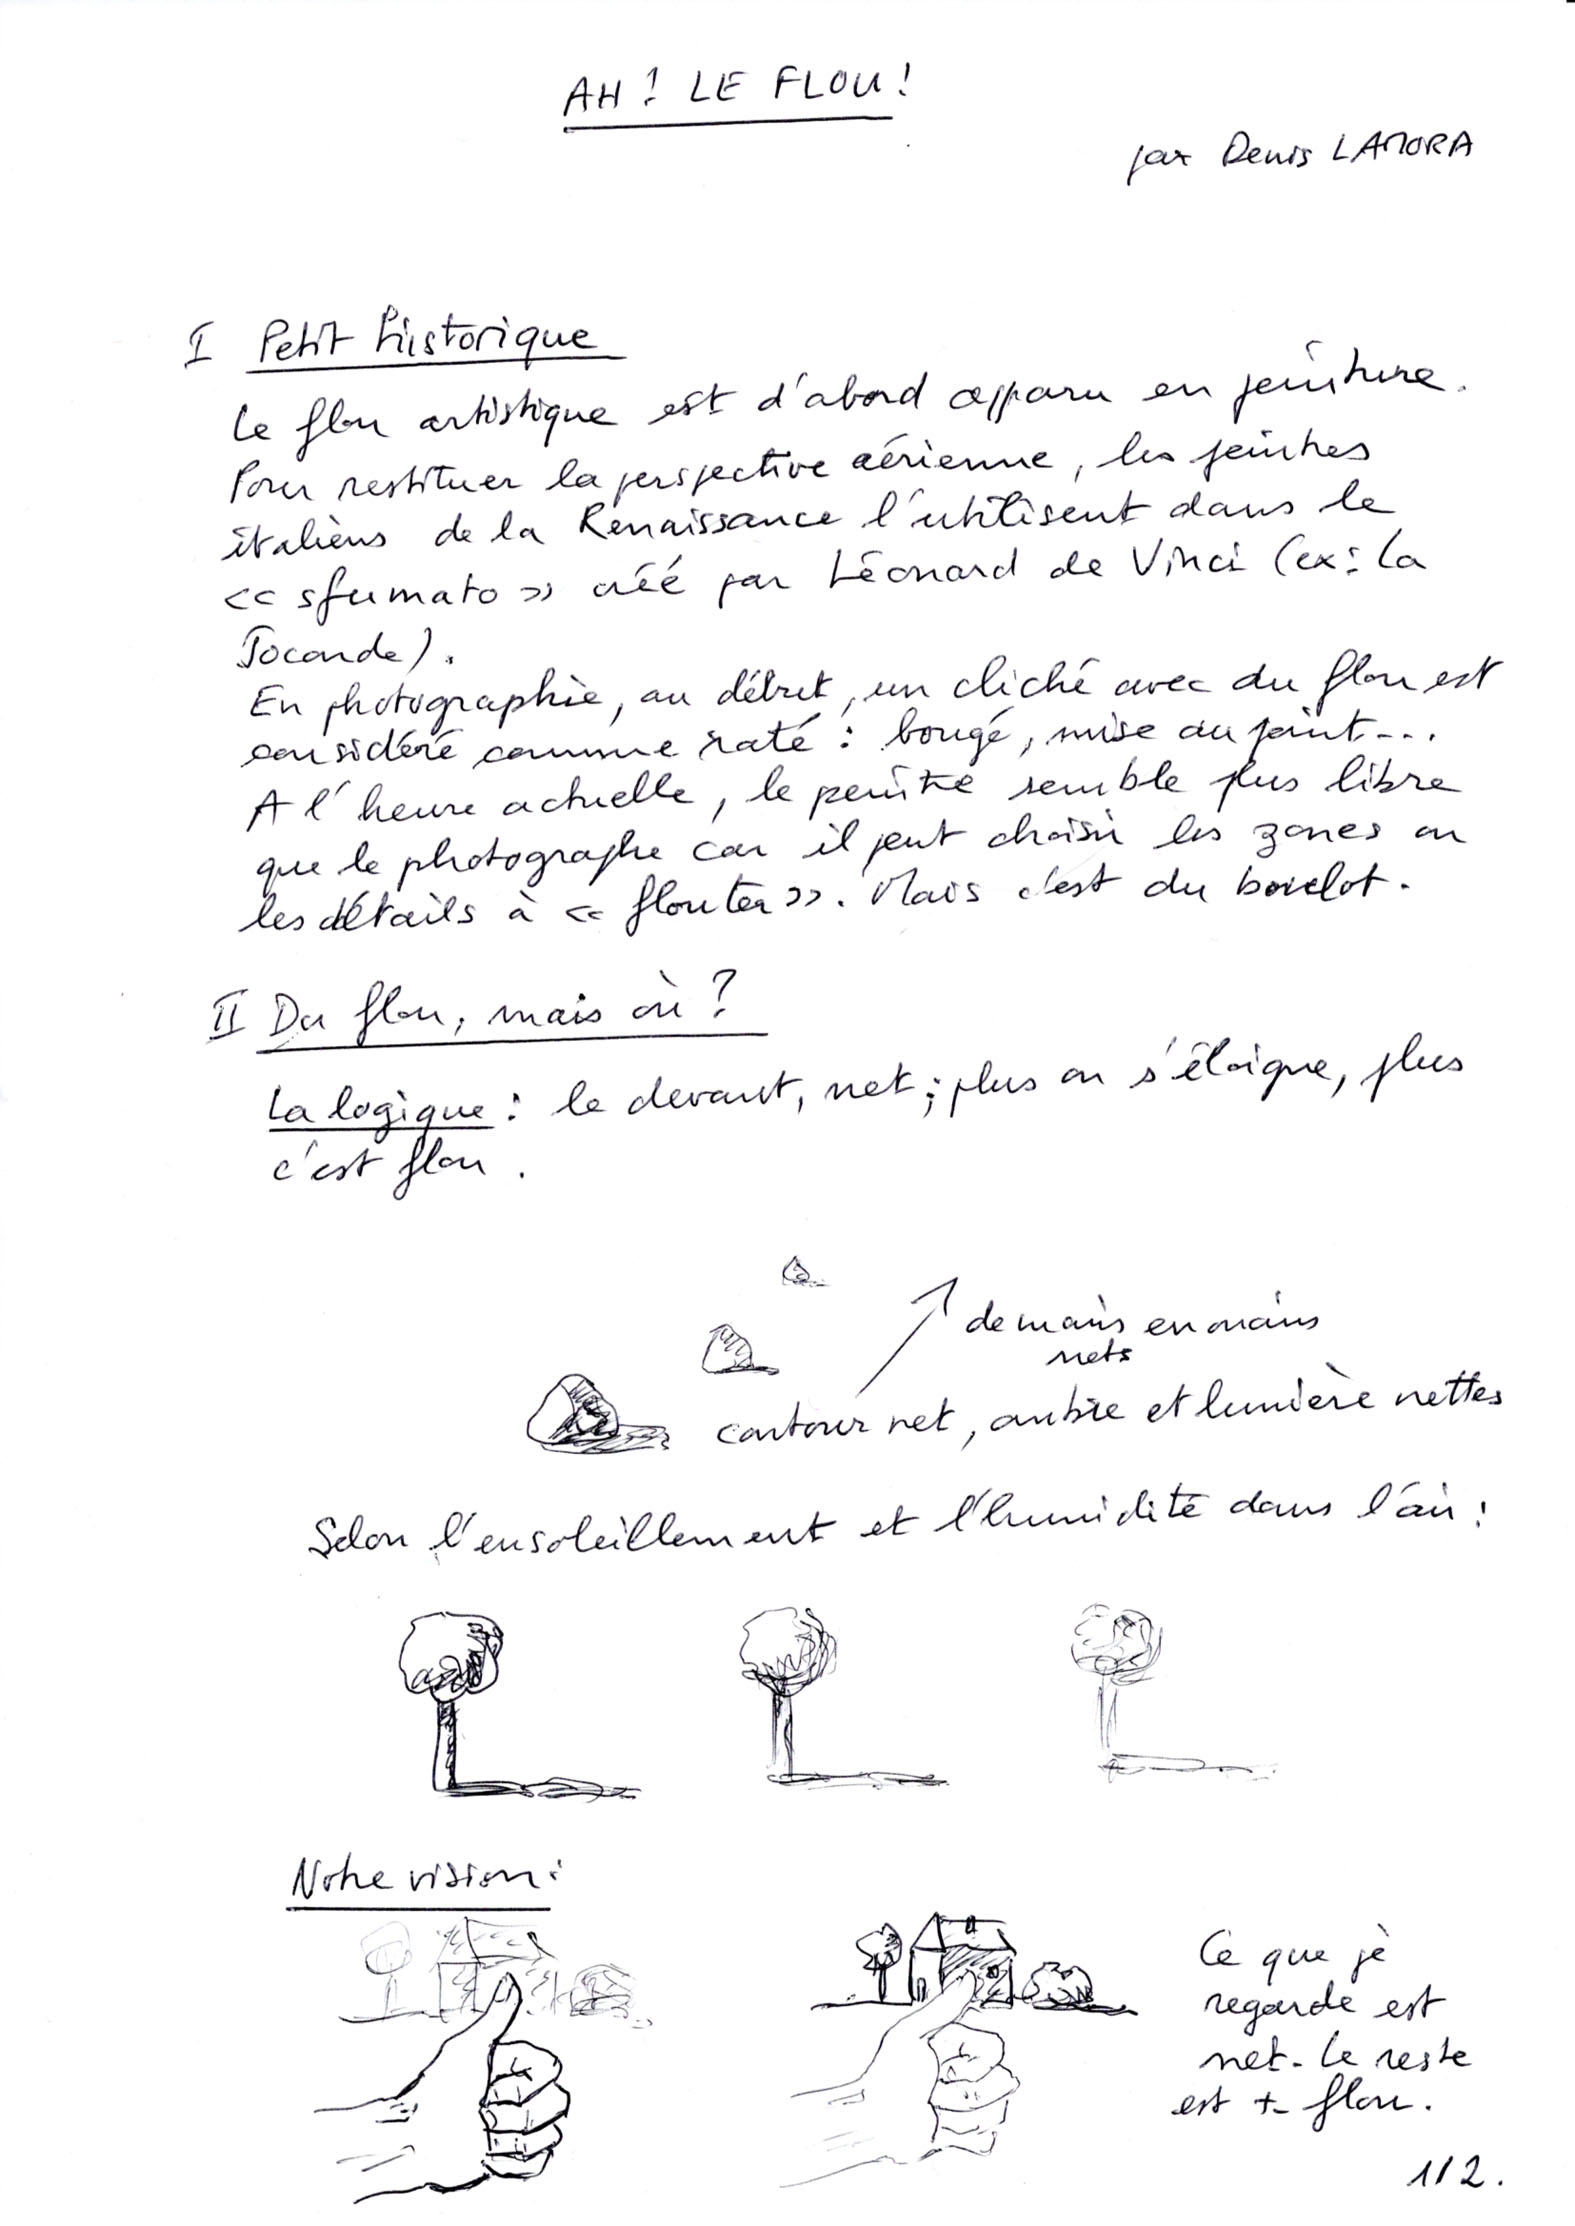 AH ! LE FLOU !
par Denis LAMORA
I Petit historique
Le flou artistique est d'abord apparu en peinture.
Pour restituer la perspective aérienne, les peintres
italiens de la Renaissance l'utilisent dans le
<< sfumato >> créé par Léonard de Vinci (ex : La
Joconde).
En photographie, au début, un cliché avec du flou est
considéré comme raté : bougé, mise au point...
A l'heure actuelle, le peintre semble plus libre
que le photographe car il peut choisir les zones ou
les détails à << flouter >>. Mais c'est du boulot.
II Du flou, mais où ?
La logique : le devant, net ; plus on s'éloigne, plus
c'est flou.
de moins en moins
nets
contour net, ombre et lumière nettes
Selon l'ensoleillement et l'humidité dans l'air :
Notre vision :
Ce que je
regarde est
net. Le reste
est +- flou.
1/2.